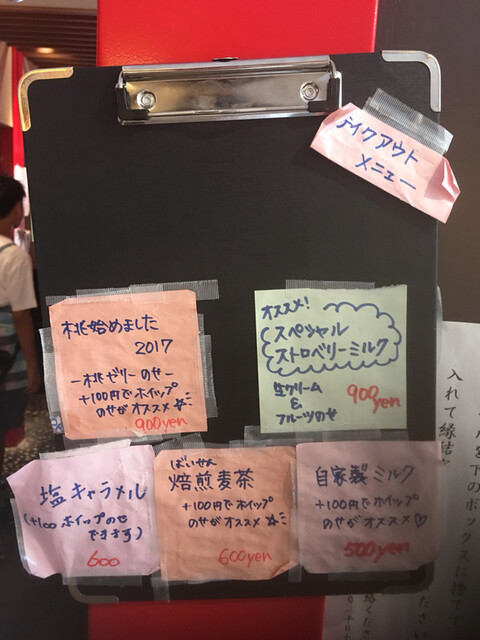 テイクアウト
メニュー
桃始めました
2017
ー桃ゼリーのせー
+100円でホイップ
のせがオススメ☆ミ
900yen
オススメ!
スペシャル
ストロベリーミルク
生クリーム
&
フルーツのせ
900
yen
塩キャラメル
(+100ホイップのせ
できます)
600
ばいせん
焙煎麦茶
+100円でホイップ
のせがオススメ☆ミ
600yen
自家製ミルク
+100円でホイップ
のせがオススメ♡
500yen
入れて縁結
下のボックスに捨てて
ださい